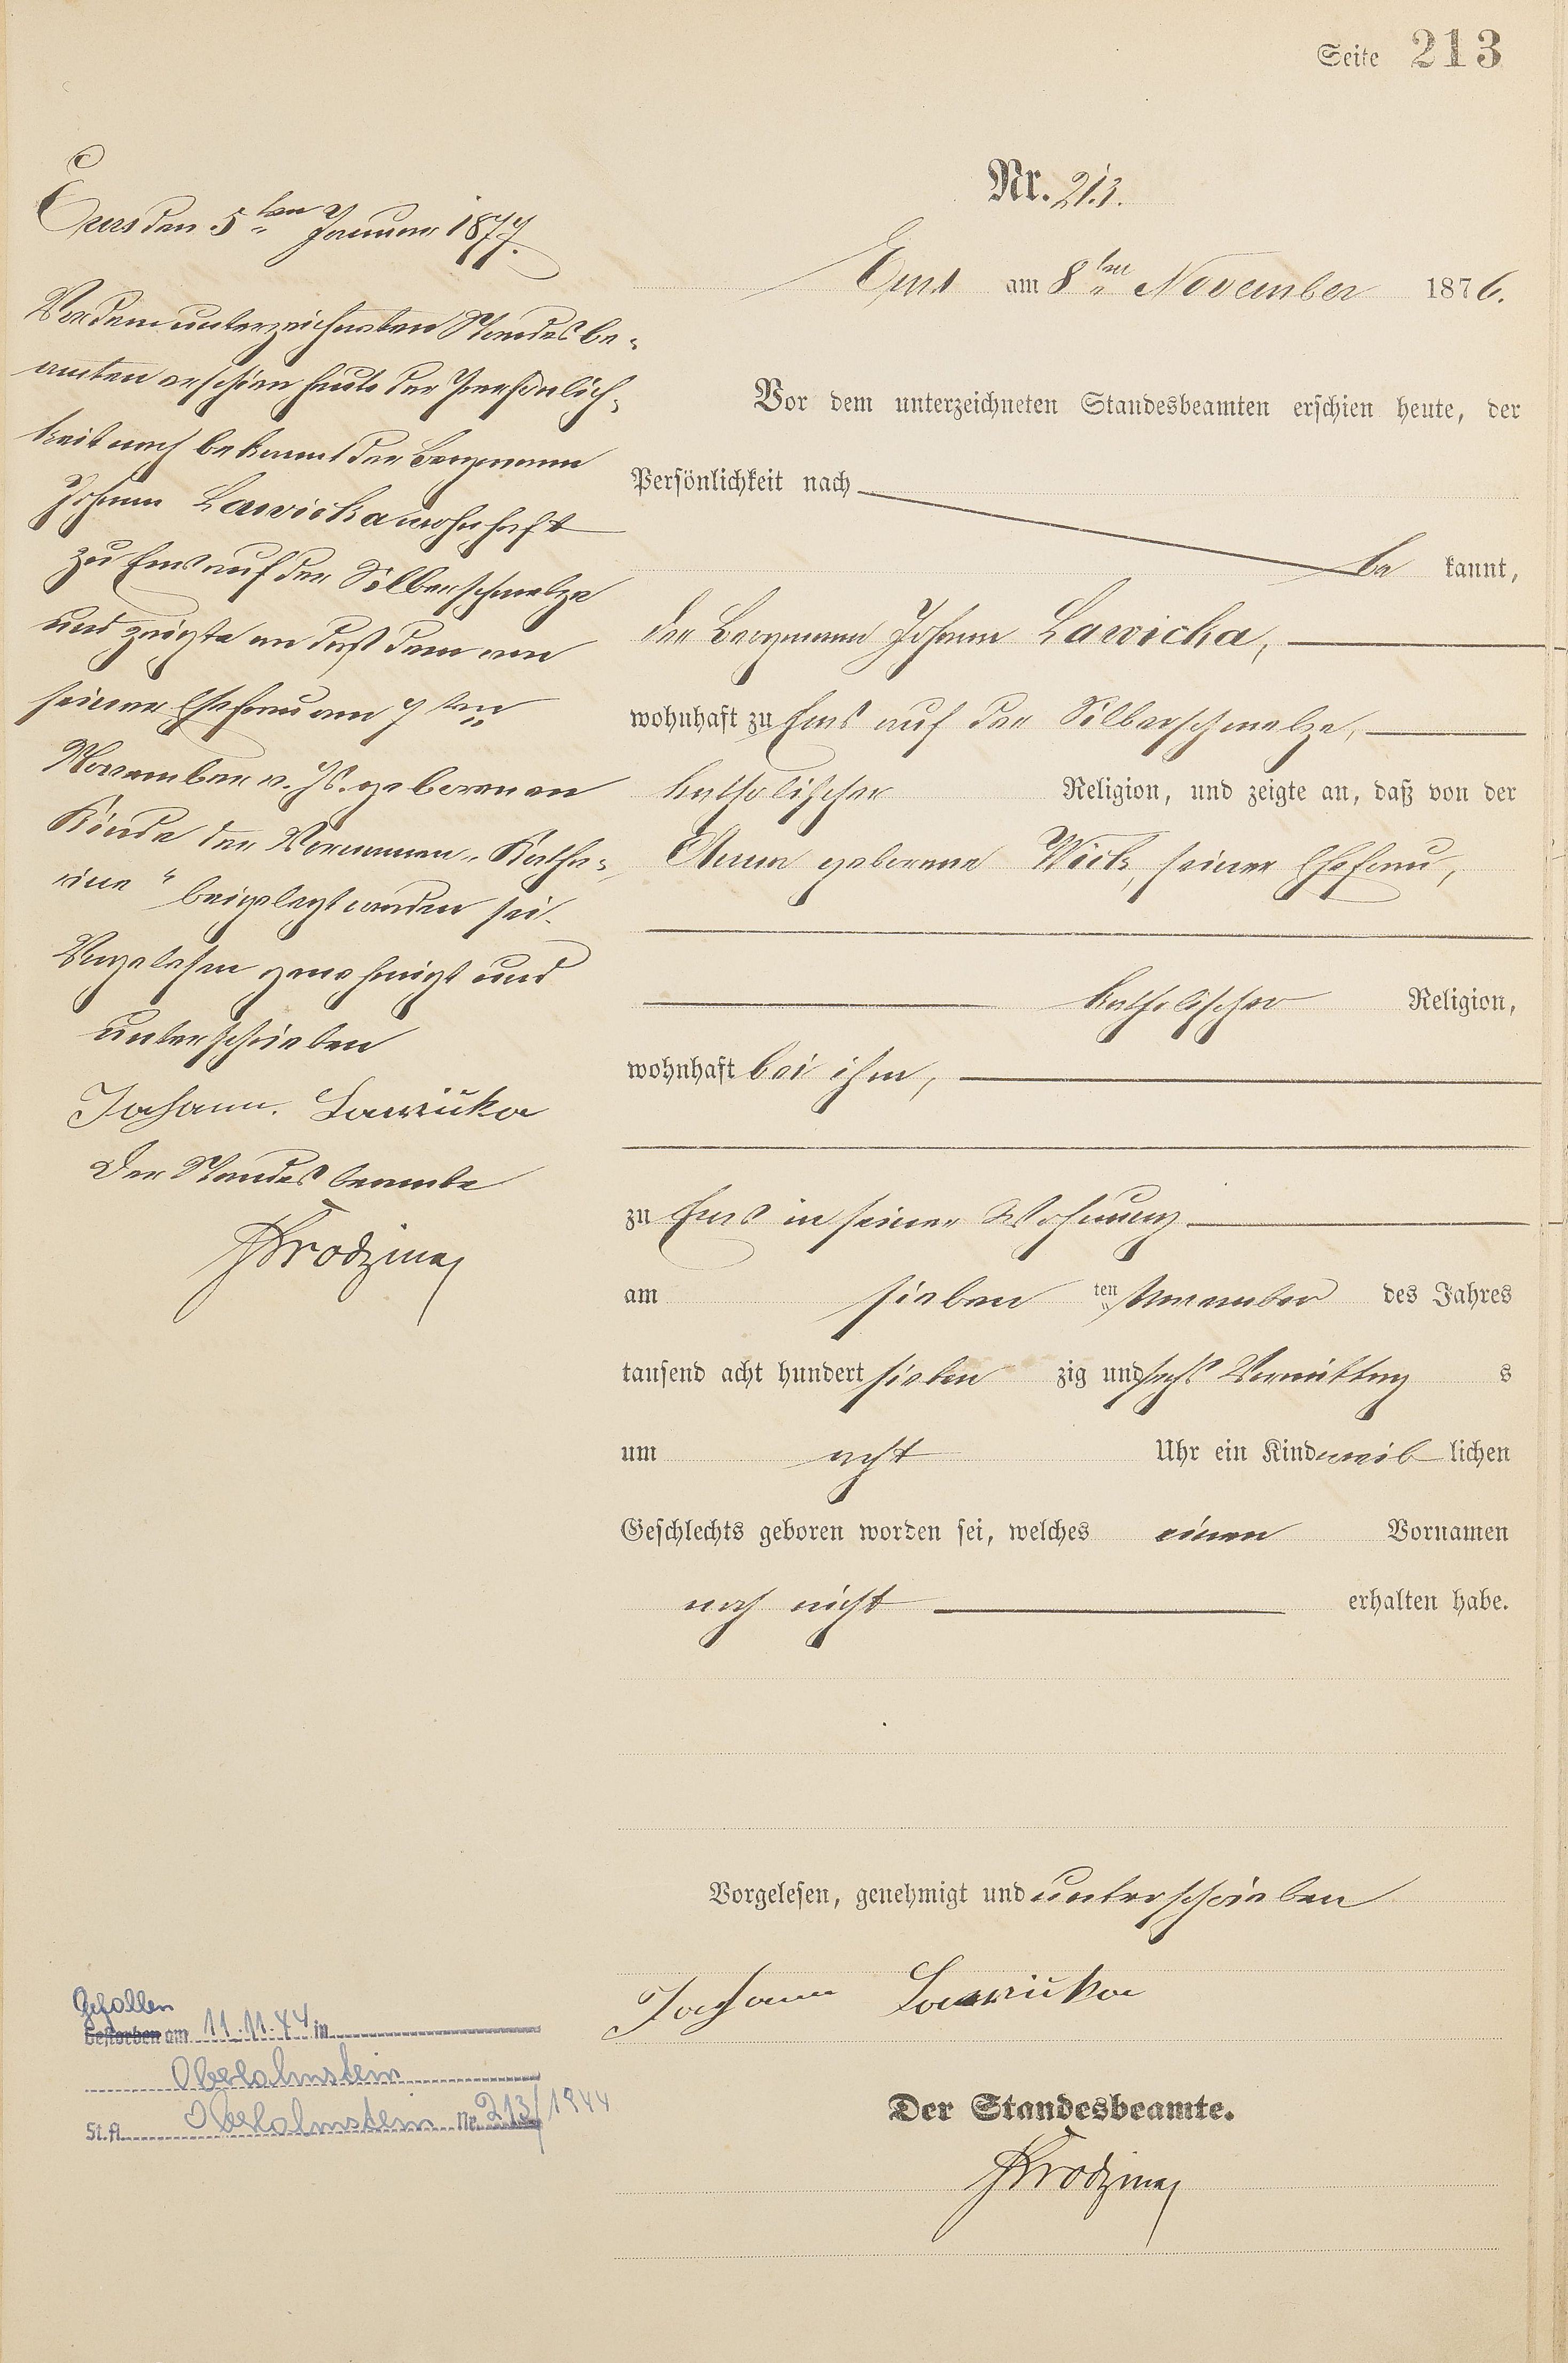 Seite 213
Nr. 213.
Ems am 8ten November 1876.
Vor dem unterzeichneten Standesbeamten erschien heute, der
Persönlichkeit nach
be kannt,
der Bergmann Johann Lawicka,
wohnhaft zu Ems auf der Silberschmelze,
katholischer Religion, und zeigte an, daß von der
Anna geborene Wick, seiner Ehefrau,
katholischer Religion,
wohnhaft bei ihm,
zu Ems in seiner Wohnung
am sieben ten November des Jahres
tausend acht hundert sieben zig und sechs Vormittag s
um acht Uhr ein Kind weib lichen
Geschlechts geboren worden sei, welches einen Vornamen
noch nicht erhalten habe.
Vorgelesen, genehmigt und unterschrieben
Johann Lawicka
Der Standesbeamte.
Ems den 5ten Januar 1877.
Vor dem unterzeichneten Standesbe-
amten erschien heute der Persönlich-
keit nach bekannt der Bergmann
Johann Lawicka wohnhaft
zu Ems auf der Silberschmelze
und zeigte an daß dem von
seiner Ehefrau am 7ten
November v. Js. geborenen
Kinde der Vornamen „Katha-
rine“ beigelegt worden sei.
Vorgelesen genehmigt und
unterschrieben
Johann. Lawicka
Der Standesbeamte
Gefallen
Gestorben am 11.11.44 in
Oberlahnstein
St.A. Oberlahnstein Nr. 213/1944